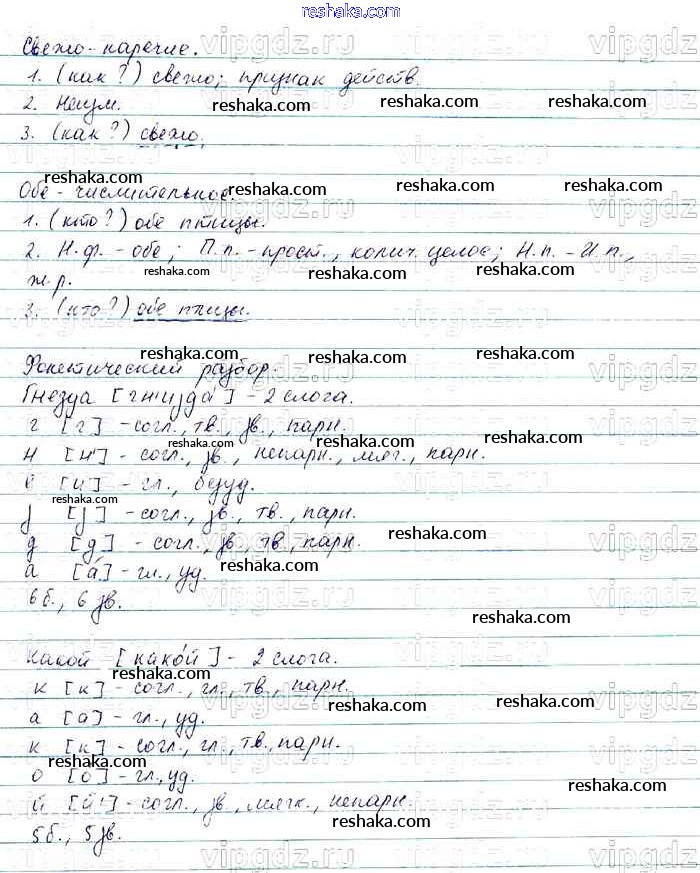 reshaka.com
Свежо - наречие.
1. (как?) свежо; признак действ.
2. Неизм.
3. (как?) свежо.
Обе - числительное.
1. (кто?) обе птицы.
2. Н.ф. - обе; П.п. - прост., колич. целое; Н.п. - И.п.,
ж.р.
3. (кто?) обе птицы.
Фонетический разбор.
Гнезда - 2 слога.
г [г] - согл., тв., зв., парн.
н [н'] - согл., зв., непарн., мяг., парн.
е [и] - гл., безуд.
з [з] - согл., зв., тв., парн.
д [д] - согл., зв., тв., парн.
а [а́] - гл., уд.
6 б., 6 зв.
Какой [како́й'] - 2 слога.
к [к] - согл., гл., тв., парн.
а [а] - гл., уд.
к [к] - согл., гл., тв., парн.
о [о] - гл., уд.
й [й'] - согл., зв., мягк., непарн.
5 б., 5 зв.